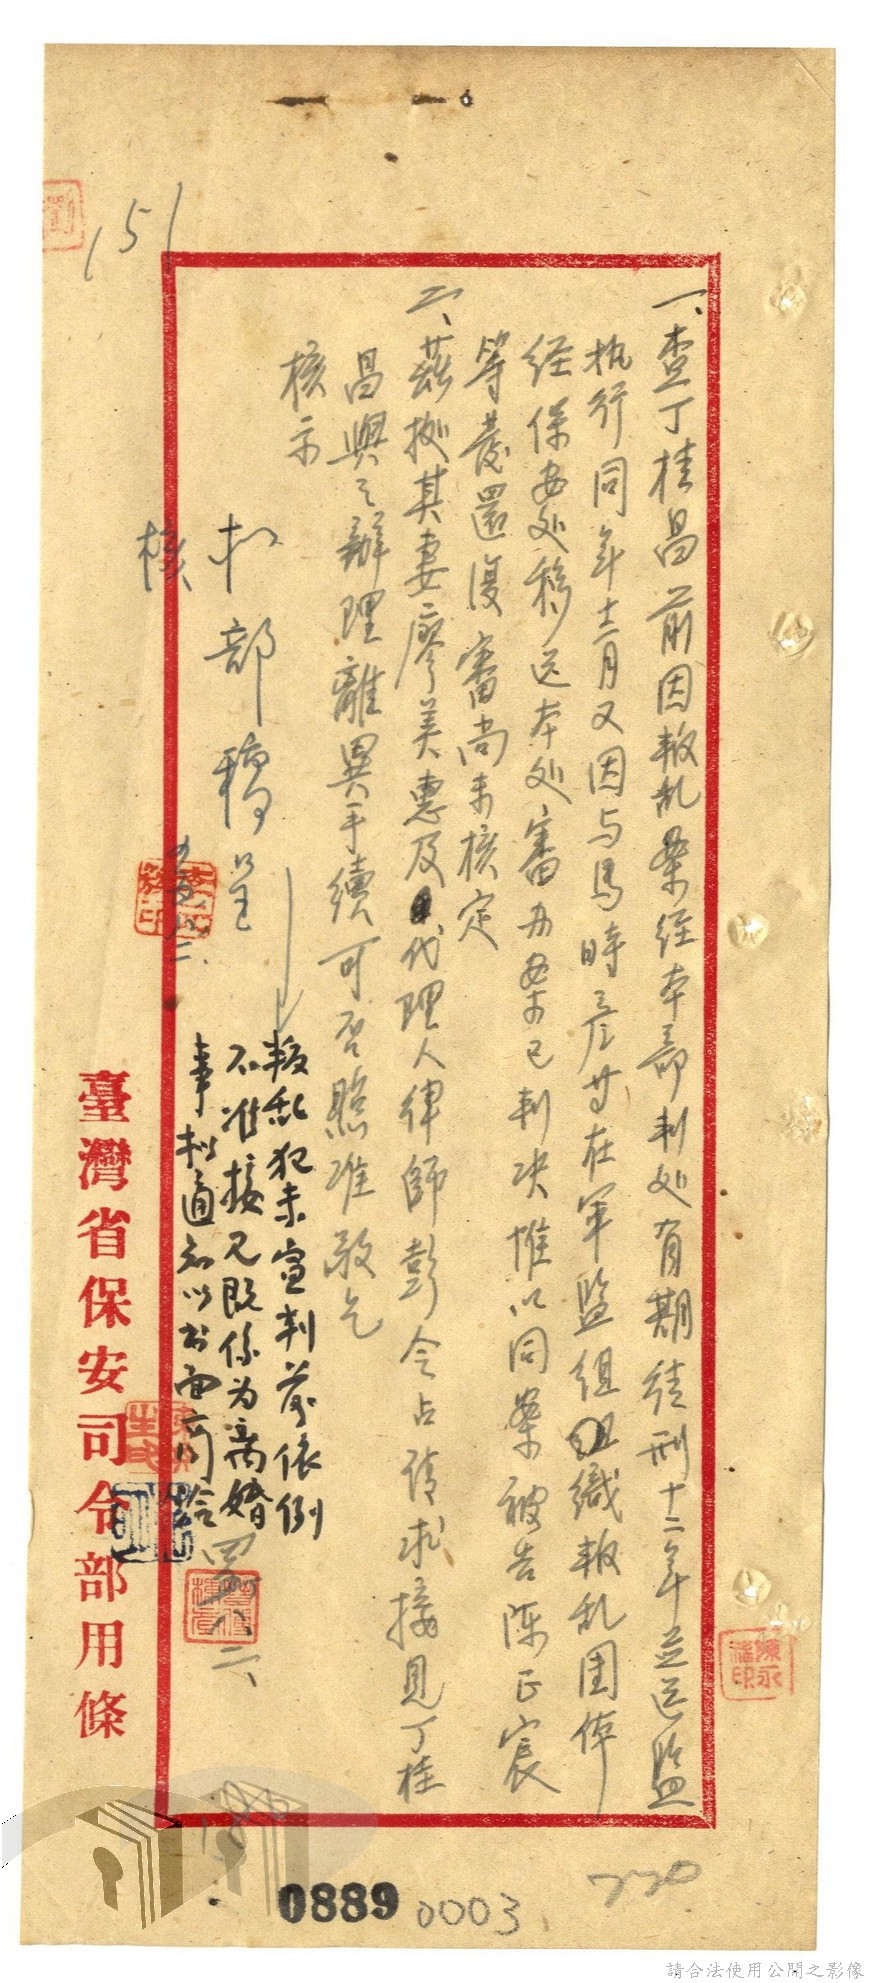 一、查丁桂昌前因叛乱案经本部判处有期徒刑十二年並送監
执行同年十二月又因与馬時彦等在軍監组織叛乱团体
经保安处移送本处審办案已判决惟以同案被告陈正宸
等發還復審尚未核定
二、茲拠其妻廖美惠及代理人律師彭令占请求接見丁桂
昌與之辦理離異手續可否照准敬乞
核示
叛乱犯未宣判前依例
不准接见既係为离婚
事判通知以书面商洽
擬部稿呈
核
八、二、
臺灣省保安司令部用條
151
陳永
印
770
0889
0003
請合法使用公開之影像